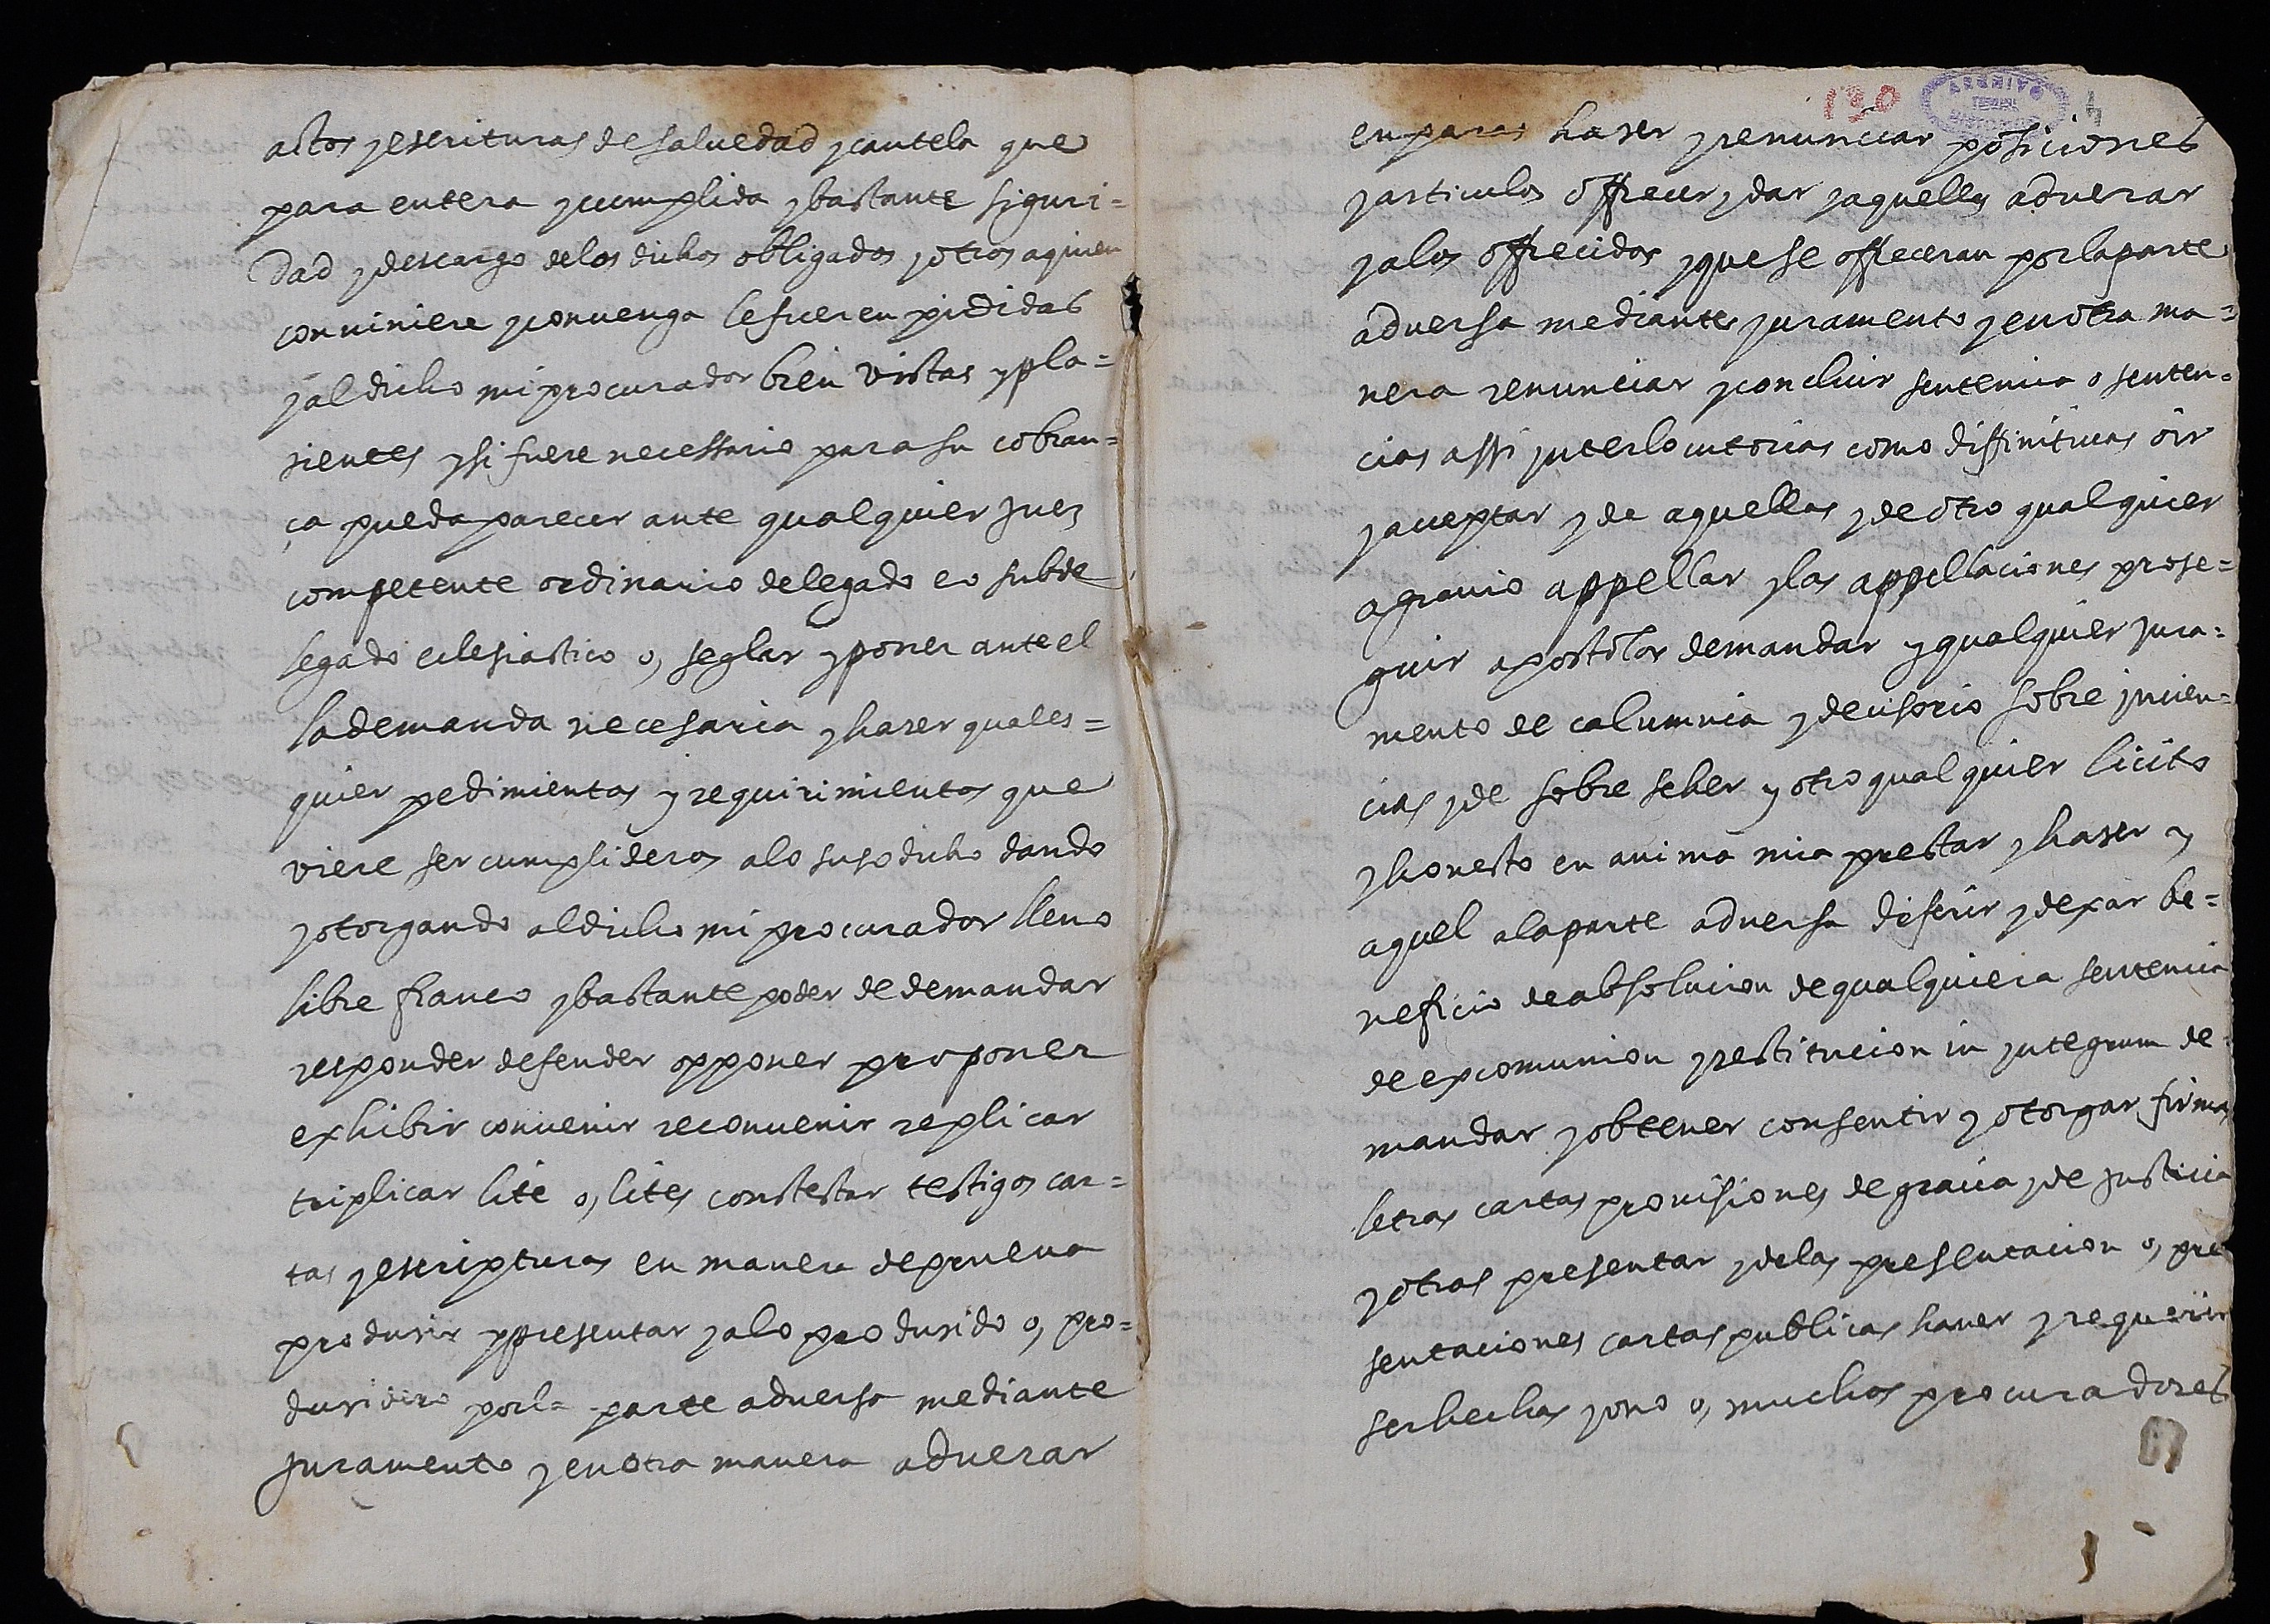 actos y escrituras de saluedad y cautela que
para entera y cumplida y bastante siguri=
dad y descargo de los dichos obligados y otros a quien
conviniere y convenga le fueren pididas
y al dicho mi procurador bien vistas y pla=
sientes y si fuere necessario para su cobran=
ça pueda parecer ante qualquier juez
competente ordinario delegado o subde
legado eclesiastico o, seglar y poner ante el
la demanda necesaria y haser quales=
quier pedimientos y requirimientos que
viere ser cumplideros a lo susodicho dando
y otorgando al dicho mi procurador lleno
libre franco y bastante poder de demandar
responder defender opponer proponer
exhibir convenir reconvenir replicar
triplicar lite o, lites constestar testigos car=
tas y escripturas en manera de prueua
produsir y presentar y a lo produsido o, pro=
dusidero por la parte aduersa mediante
juramento y en otra manera aduerar
emparas haser y renunciar posiciones
y articulos offrecer y dar y aquellos aduerar
y a los offrecidos y que se offreceran por la parte
aduersa mediante juramento y en otra ma=
nera renunciar y concluir sentencia o senten=
cias assi interlocutorias como diffinitiuas oir
y acceptar y de aquellas y de otro qualquier
agrauio appellar y las appellaciones prose=
guir apostolos demandar y qualquier jura=
mento de calumnia y decisorio sobre jncien=
cias y de sobre seher y otro qualquier licito
y honesto en anima mia prestar y haser y
aquel a la parte aduersa diferir y dexar be=
neficio de absolucion de qualquiera sentencia
de excomunion y restitucion in integrum de=
mandar y obtener consentir y otorgar firmas
letras cartas prouisiones de gracia y de justicia
y otras presentar y de las presentacion o, pre
sentaciones cartas publicas hauer y requerir
ser hechas y vno o, muchos procuradores
130
ARCHIVO